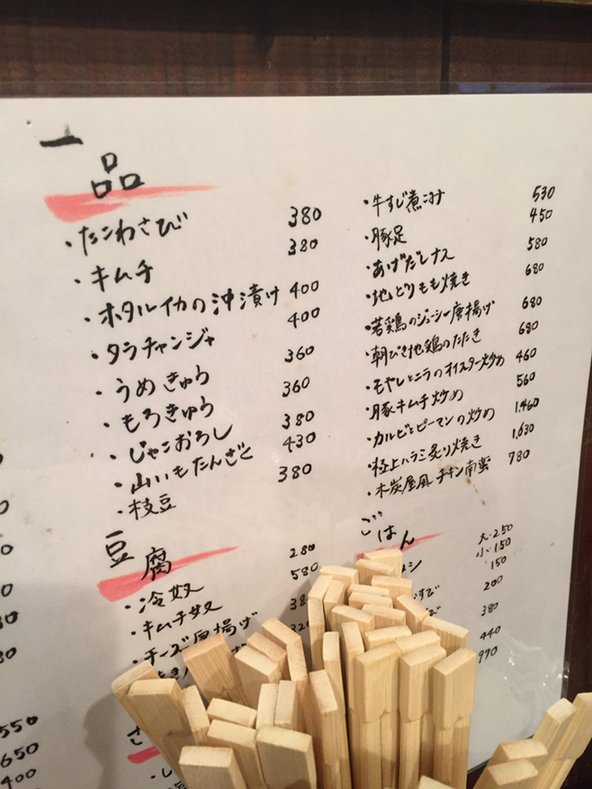 一品
・たこわさび 380
・キムチ 380
・ホタルイカの沖漬け 400
・タラチャンジャ 400
・うめきゅう 360
・もろきゅう 360
・じゃこおろし 380
・山いもたんざく 430
・枝豆 380
豆腐
・冷奴 280
・キムチ奴 580
・チーズ厚揚げ
・牛すじ煮込み 530
・豚足 450
・あげだしナス 580
・地どりもも焼き 680
・若鶏のジューシー唐揚げ 680
・朝びき地鶏のたたき 680
・もやしとニラのオイスター炒め 460
・豚キムチ炒め 560
・カルビとピーマンの炒め 1,460
・極上ハラミ炙り焼き 1,630
・木炭屋風チキン南蛮 780
ごはん
大・250
小・150
150
200
380
440
970
550
650
400